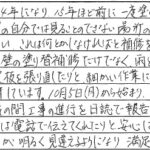 4年になり 15年ほど前に一度壁の
の自分では見ることのできない場所の
い、これは何とかしなければと補修を
壁の塗り替補修だけでなく、雨
板を張り直したりと細かい作業に
ています。10月5日(月)から始まり、
の間工事の進行を日誌で報告
は電話で伝えてくれたりと安心に
か明るく見違えるようになり 満足